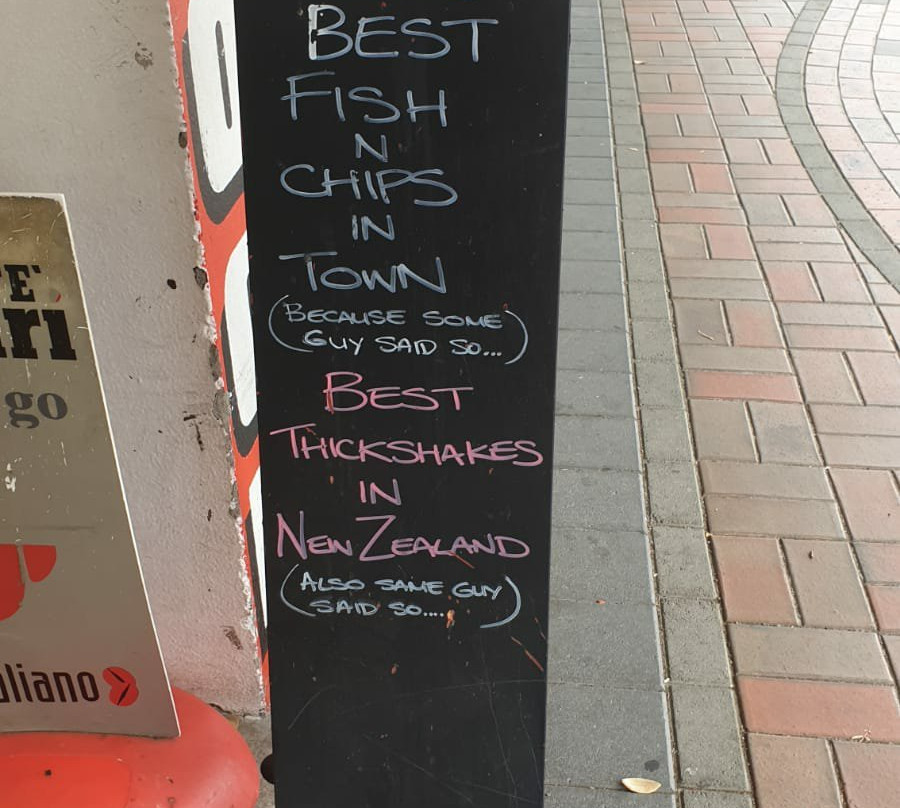 BEST
FISH
N
CHIPS
IN
TOWN
(BECAUSE SOME
GUY SAID SO...)
BEST
THICKSHAKES
IN
NEW ZEALAND
(ALSO SAME GUY
SAID SO....)
go